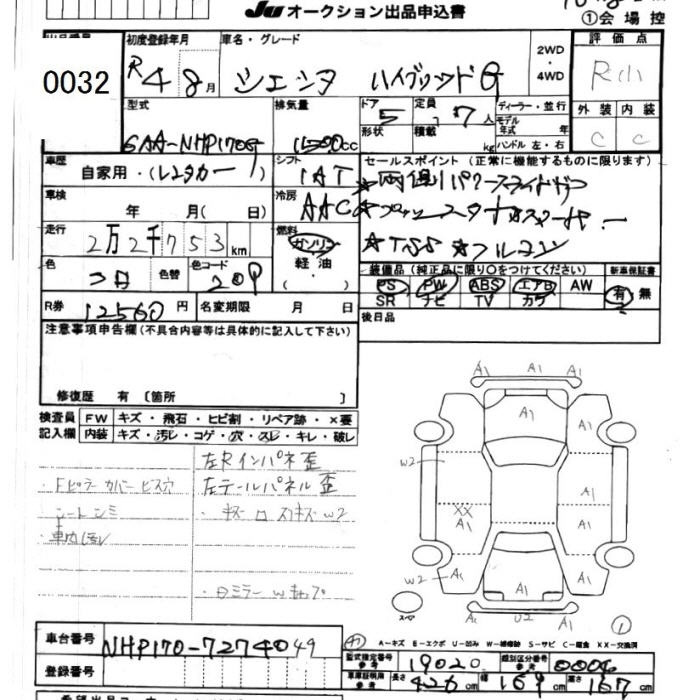 JU オークション出品申込書
①会場控
0032
初度登録年月
R4 8月
車名・グレード
シエンタ ハイブリッドG
2WD
・
4WD
評価点
R小
型式
6AA-NHP170G
排気量
1500cc
ドア 5
形状
定員 7人
積載 kg
ディーラー・並行
モデル年式 年
ハンドル 左・右
外装 内装
C C
車歴
自家用・(レンタカー)
シフト
IAT
セールスポイント (正常に機能するものに限ります)
★両側パワースライドドア
車検
年 月( 日)
冷房
AAC
走行
2万2千753km
燃料
ガソリン
軽油
・( )
★TSS ★フルセグ
色
色替
色コード
209
装備品 (純正品に限り○をつけてください)
PS PW ABS エアB AW
SR ナビ TV カワ
新車保証書
有・無
R券
12560円
名変期限 月 日
後日品
注意事項申告欄(不具合内容等は具体的に記入して下さい)
修復歴 有〔箇所 〕
検査員記入欄
FW キズ・飛石・ヒビ割・リペア跡・×要
内装 キズ・汚レ・コゲ・穴・スレ・キレ・破レ
左Rインパネ歪
・Fピラーカバービス穴
左テールパネル歪
シートシミ
・車内汚レ
A1 A1 A1
A1 A1
W2
A1
XX
A1 A1
A1
W2 A1 A1
A1 U2 A1
スペア
①
車台番号
NHP170-7274049
登録番号
A-キズ E-エクボ U-凹み W-補修跡 S-サビ C-腐食 XX-交換済
型式指定番号 参考
19020
類別区分番号 参考
0004
車庫証明用 参考
長さ 426cm
幅 169cm
高さ 167cm